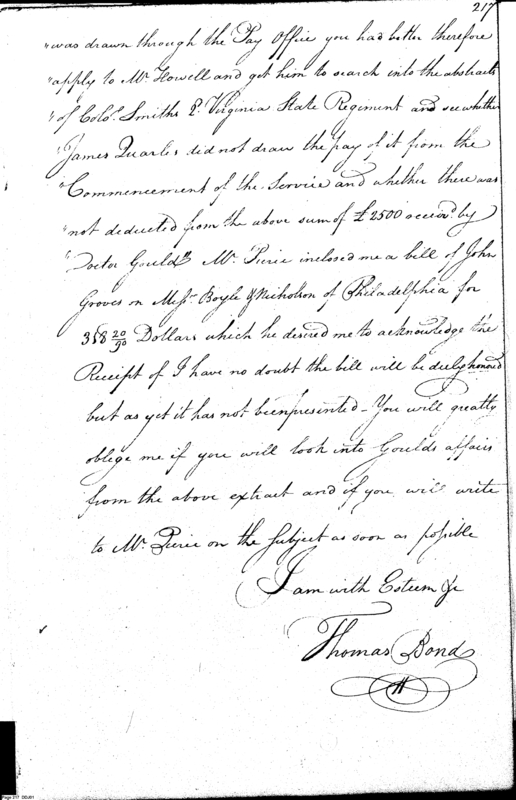 217
"was drawn through the Pay Office you had better therefore
"apply to Mr. Howell and get him to search into the abstracts
"of Colo. Smiths 2d. Virginia State Regiment and see whether
"James Quarles did not draw the pay of it from the
"Commencement of the Service and whether there was
"not deducted from the above sum of £2500 by
"Doctor Gould" Mr. Pierce inclosed me a bill of John
Groves on Messrs. Boyle & Nicholson of Philadelphia for
358 20/90 Dollars which he desired me to acknowledge the
Receipt of I have no doubt the bill will be duly honored
but as yet it has not been presented – You will greatly
oblege me if you will look into Goulds affairs
from the above extract and if you will write
to Mr. Pierce on the Subject as soon as possible
I am with Esteem &c
Thomas Bond
Page 217 DDJ01